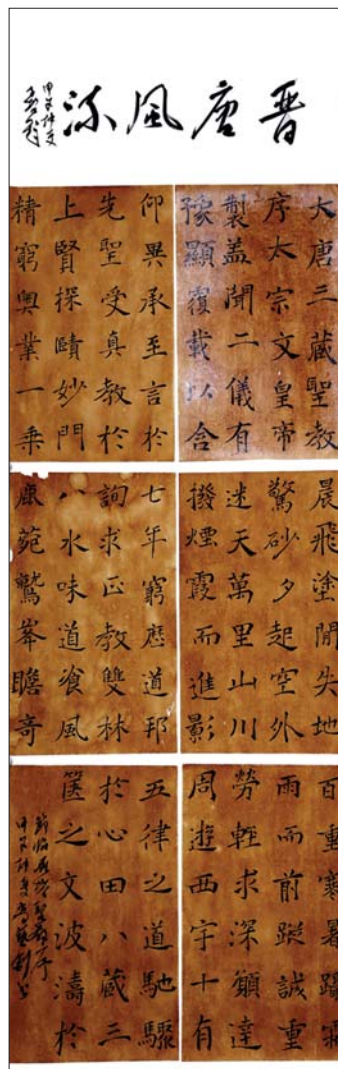 晋唐風流
甲午仲夏
大唐三藏聖教
序太宗文皇帝
製盖聞二儀有
像顯覆載以含
仰異承至言於
先聖受真教於
上賢探賾妙門
精窮奥業一乘
晨飛塗閒失地
驚砂夕起空外
迷天萬里山川
撥煙霞而進影
七年窮歷道邦
詢求正教雙林
八水味道飡風
鹿菀鷲峯瞻奇
百重寒暑躡霜
雨而前蹤誠重
勞輕求深願達
周遊西宇十有
五律之道馳驟
於心田八藏三
篋之文波濤於
節臨雁塔聖教序
甲午仲夏